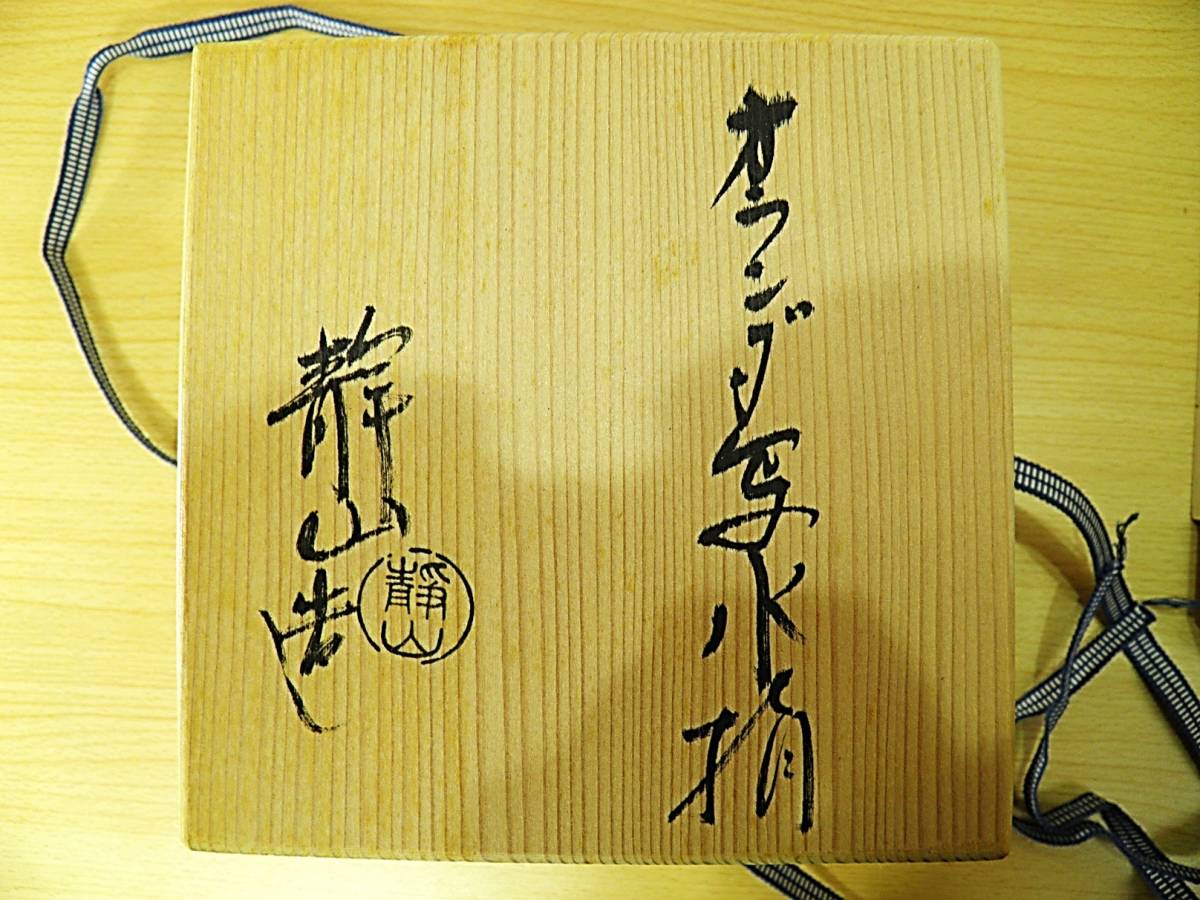 オランダ写水指
静山造
静山